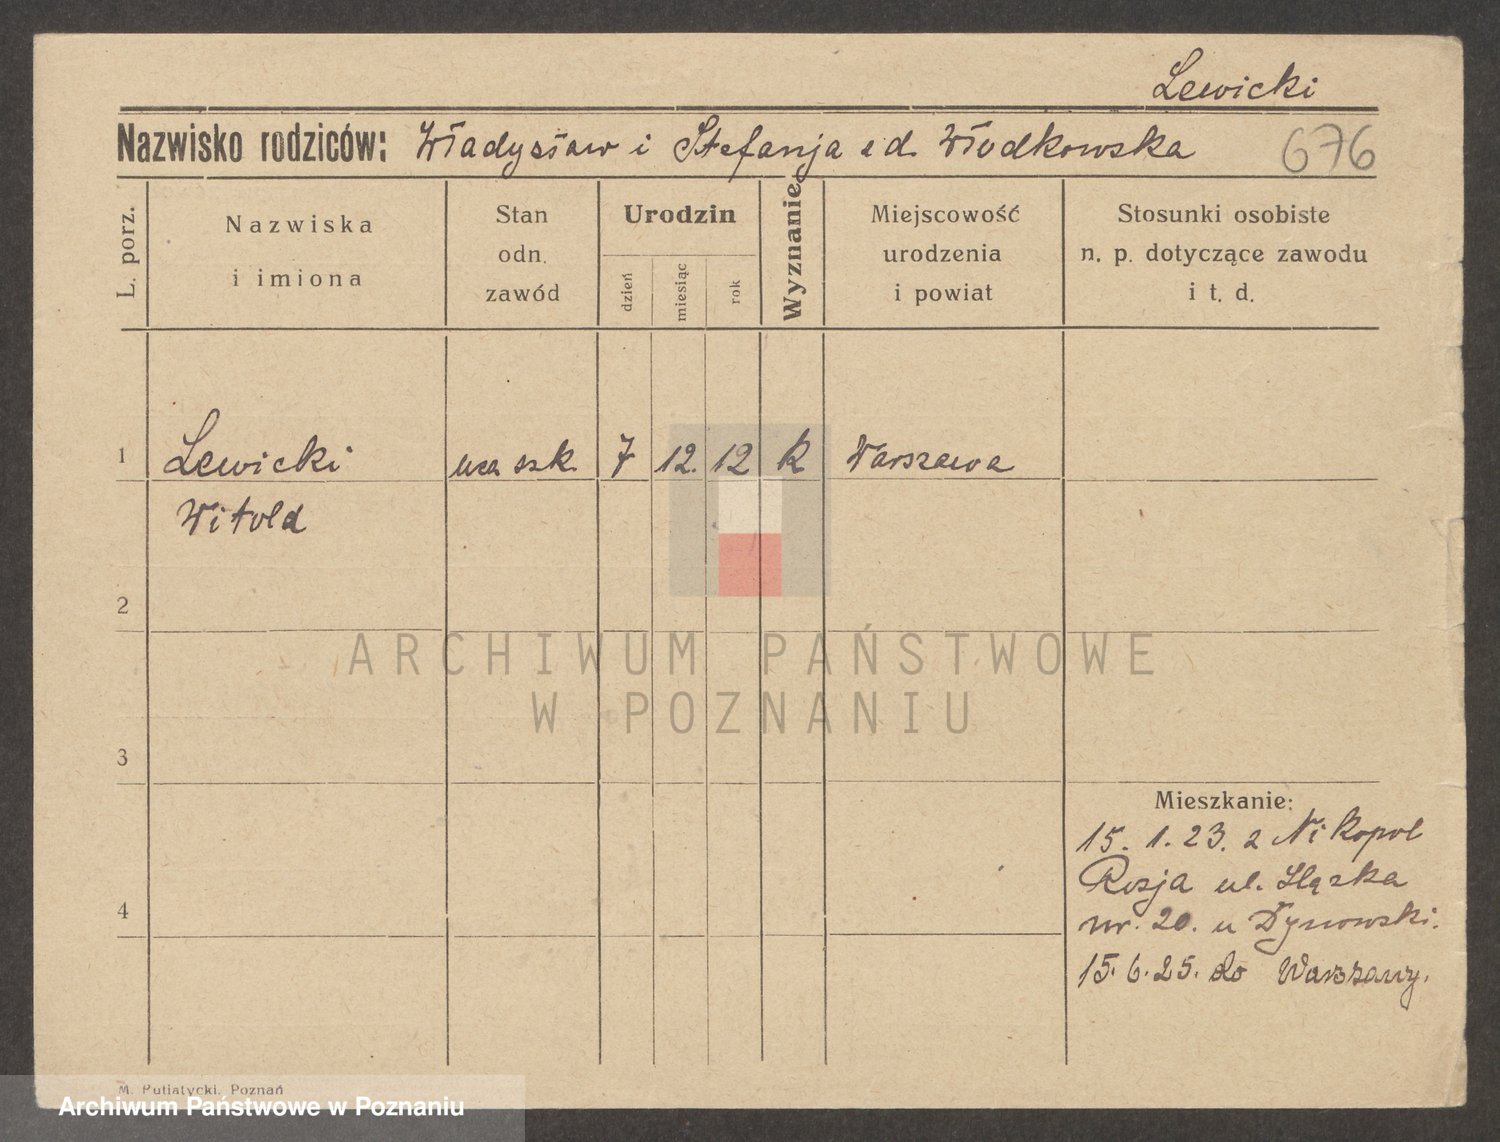 Lewicki
Nazwisko rodziców: Władysław i Stefanja z d. Włodkowska 676
L. porz.
Nazwiska
i imiona
Stan
odn.
zawód
Urodzin
dzień
miesiąc
rok
Wyznanie
Miejscowość
urodzenia
i powiat
Stosunki osobiste
n. p. dotyczące zawodu
i t. d.
1 Lewicki ucz szk. 7 12. 12 k Warszawa
Witold
2
ARCHIWUM PAŃSTWOWE
W POZNANIU
3
Mieszkanie:
15. 1. 23. z Nikopol
Rosja ul. Śląska
4
nr. 20. u Dynowski.
15. 6. 25. do Warszawy.
M. Putiatycki, Poznań
Archiwum Państwowe w Poznaniu